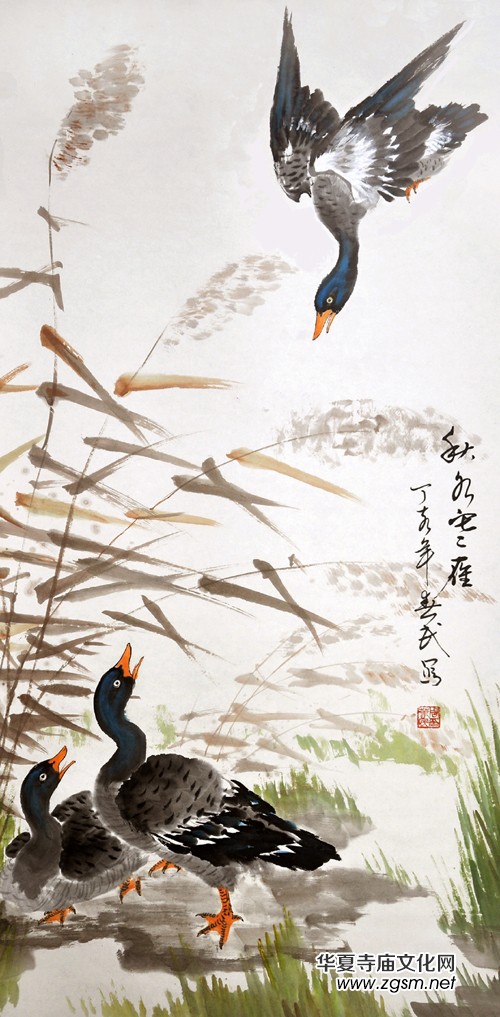 秋水寒雁
丁亥年 民写
华夏寺庙文化网
www.zgsm.net